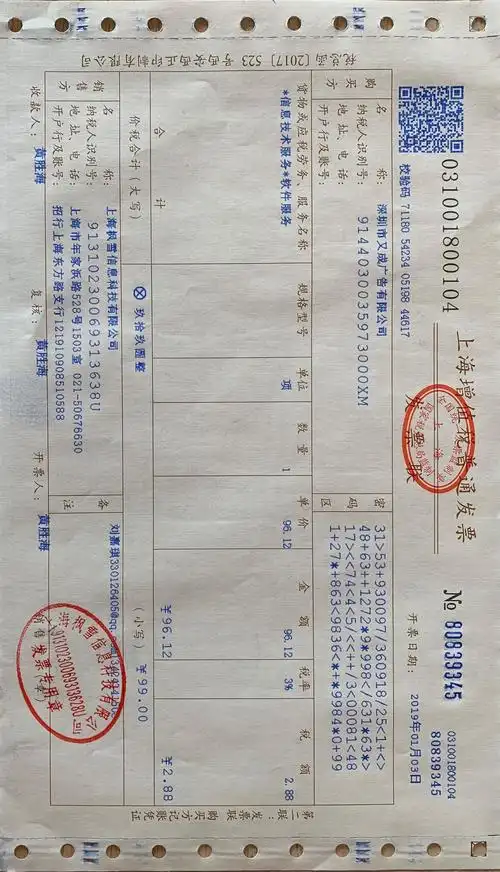 031001800104
上海增值税普通发票
发票联
№ 80839345
031001800104
80839345
校验码 71180 54234 05198 44617
开票日期: 2019年01月03日
税总函 [2017] 523
购买方
名 称: 深圳市又成广告有限公司
纳税人识别号: 91440300359730000XM
地址、电话:
开户行及账号:
密码区
31>53+930097/360918/25<1+<>
48+63++1272*9*998</631*63*>
17><<74<4<5/<<++/3<00081<48
1+27*+863<9836<*+*9984*0+99
货物或应税劳务、服务名称 规格型号 单位 数量 单价 金额 税率 税额
*信息技术服务*软件服务 项 1 96.12 96.12 3% 2.88
合 计 ￥96.12 ￥2.88
价税合计（大写） ⊗玖拾玖圆整 （小写） ￥99.00
销售方
名 称: 上海枫雪信息科技有限公司
纳税人识别号: 91310230069313638U
地址、电话: 上海市年家浜路528号1503室 021-50676630
开户行及账号: 招行上海东方路支行121910908510588
备注
刘嘉琪330126405@qq
收款人: 黄胜海 复核: 黄胜海 开票人: 黄胜海 销售方:(章)
91310230069313628U
发票专用章
第二联:发票联 购买方记账凭证